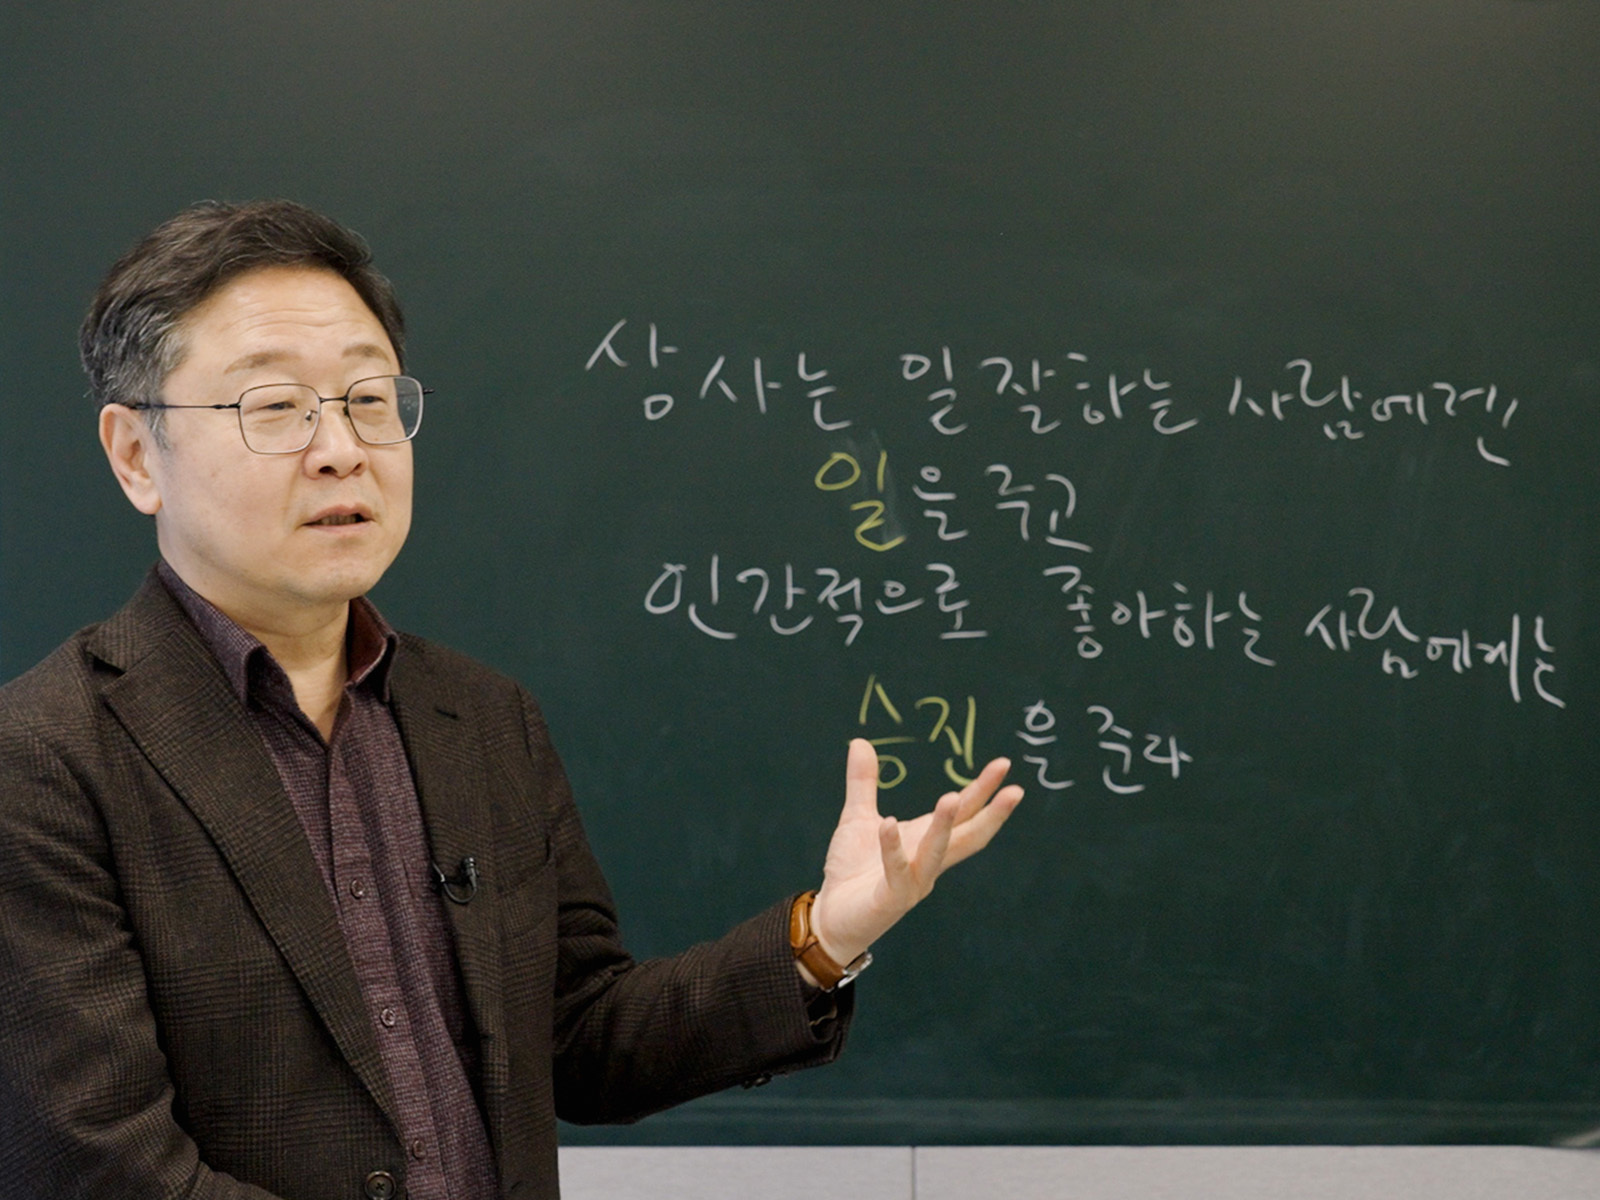 상사는 일 잘하는 사람에겐
일을 주고
인간적으로 좋아하는 사람에게는
승진을 준다